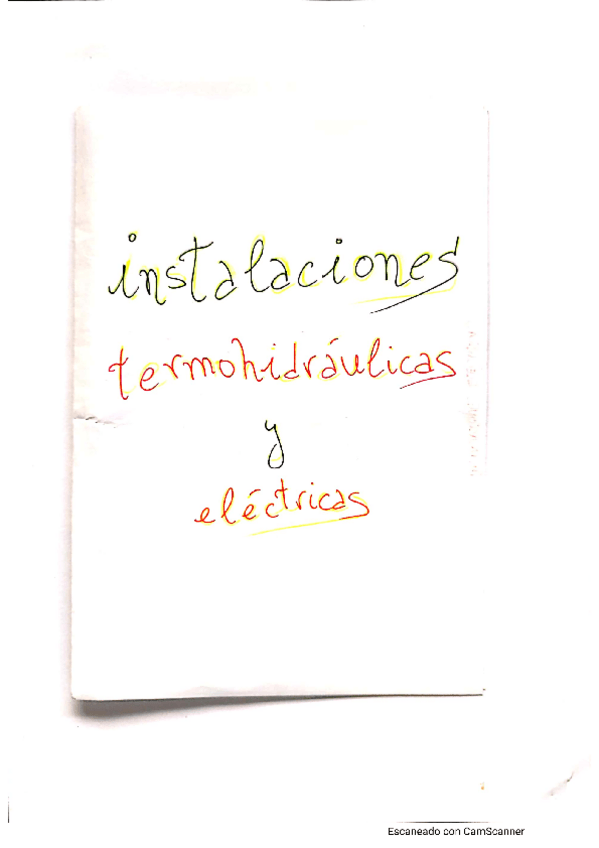 instalaciones
termohidráulicas
y
eléctricas
Escaneado con CamScanner